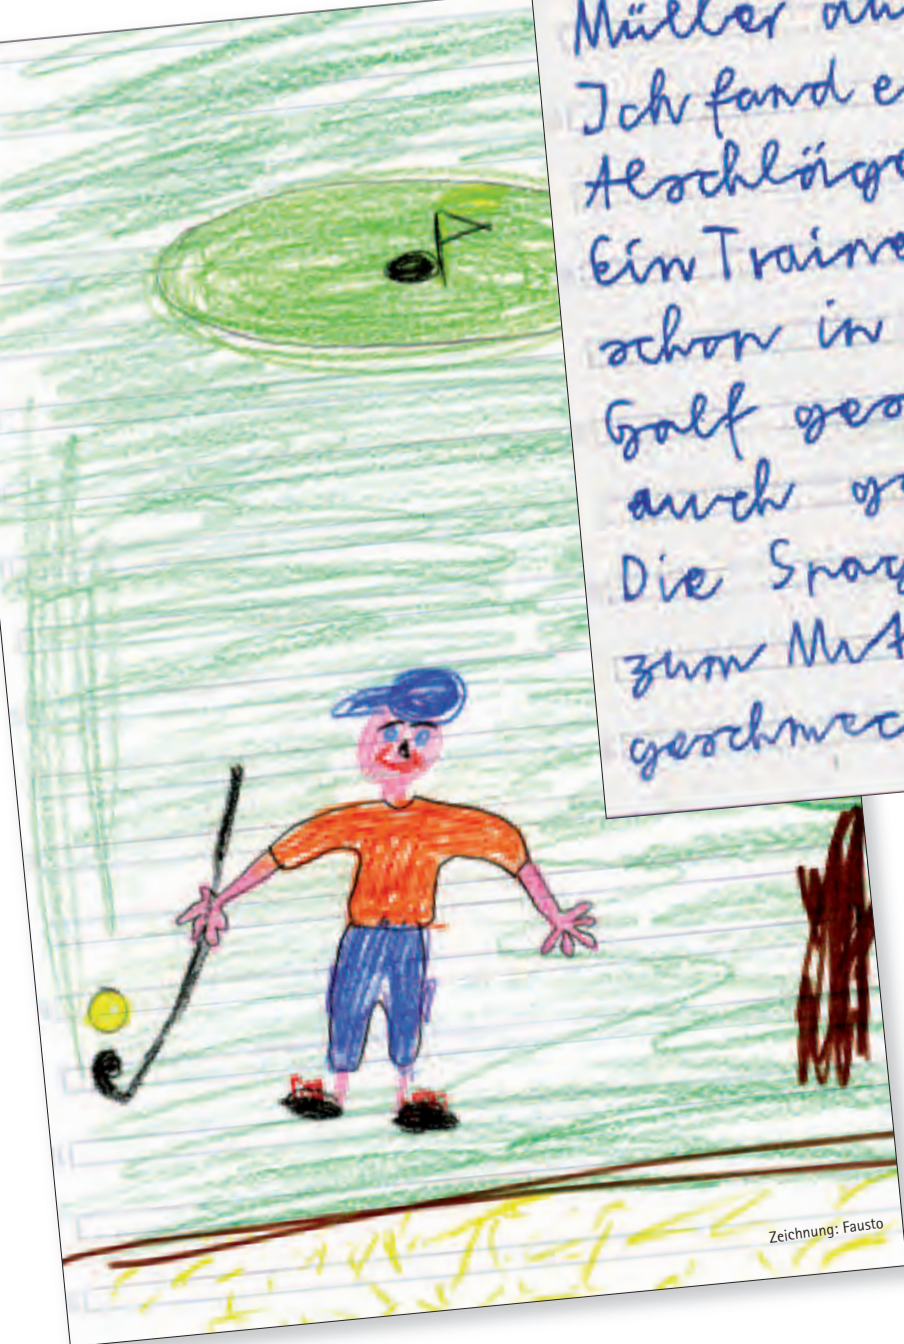 Müller
Ich fand e
Abschläge
Ein Traine
schon in
Golf ges
auch ge
Die Spag
zum Mit
geschmec
Zeichnung: Fausto